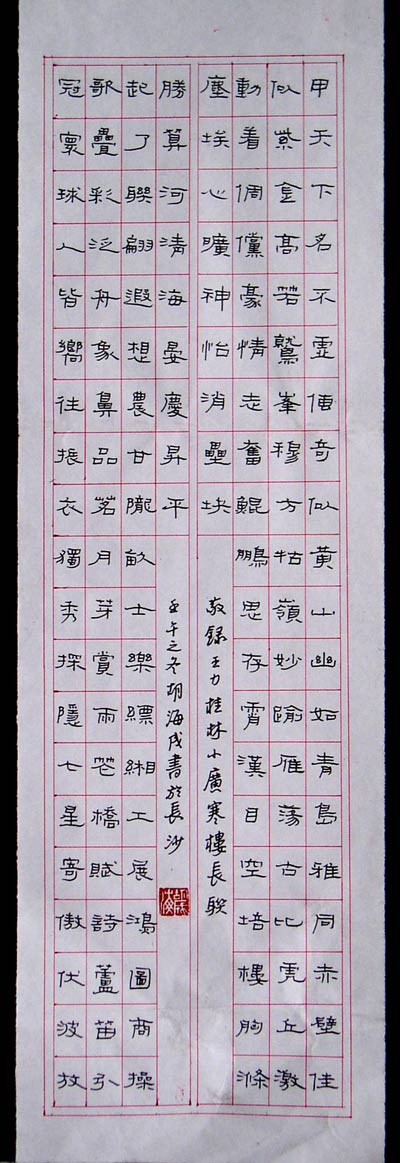 甲天下名不虛傳奇似黃山幽如青島雅同赤壁佳
似紫金高若鷲峯穆方牯嶺妙踰雁蕩古比虎丘激
動着倜儻豪情志奮鯤鵬思存霄漢目空培樓胸滌
塵埃心曠神怡消壘块
敬録王力桂林小廣寒樓長联
冠寰球人皆嚮往振衣獨秀探隱七星寄傲伏波放
歌疊彩泛舟象鼻品茗月芽賞雨花橋賦詩蘆笛引
起了聯翩遐想農甘隴畝士樂縹緗工展鴻圖商操
勝算河清海晏慶昇平
壬午之冬胡海書於長沙